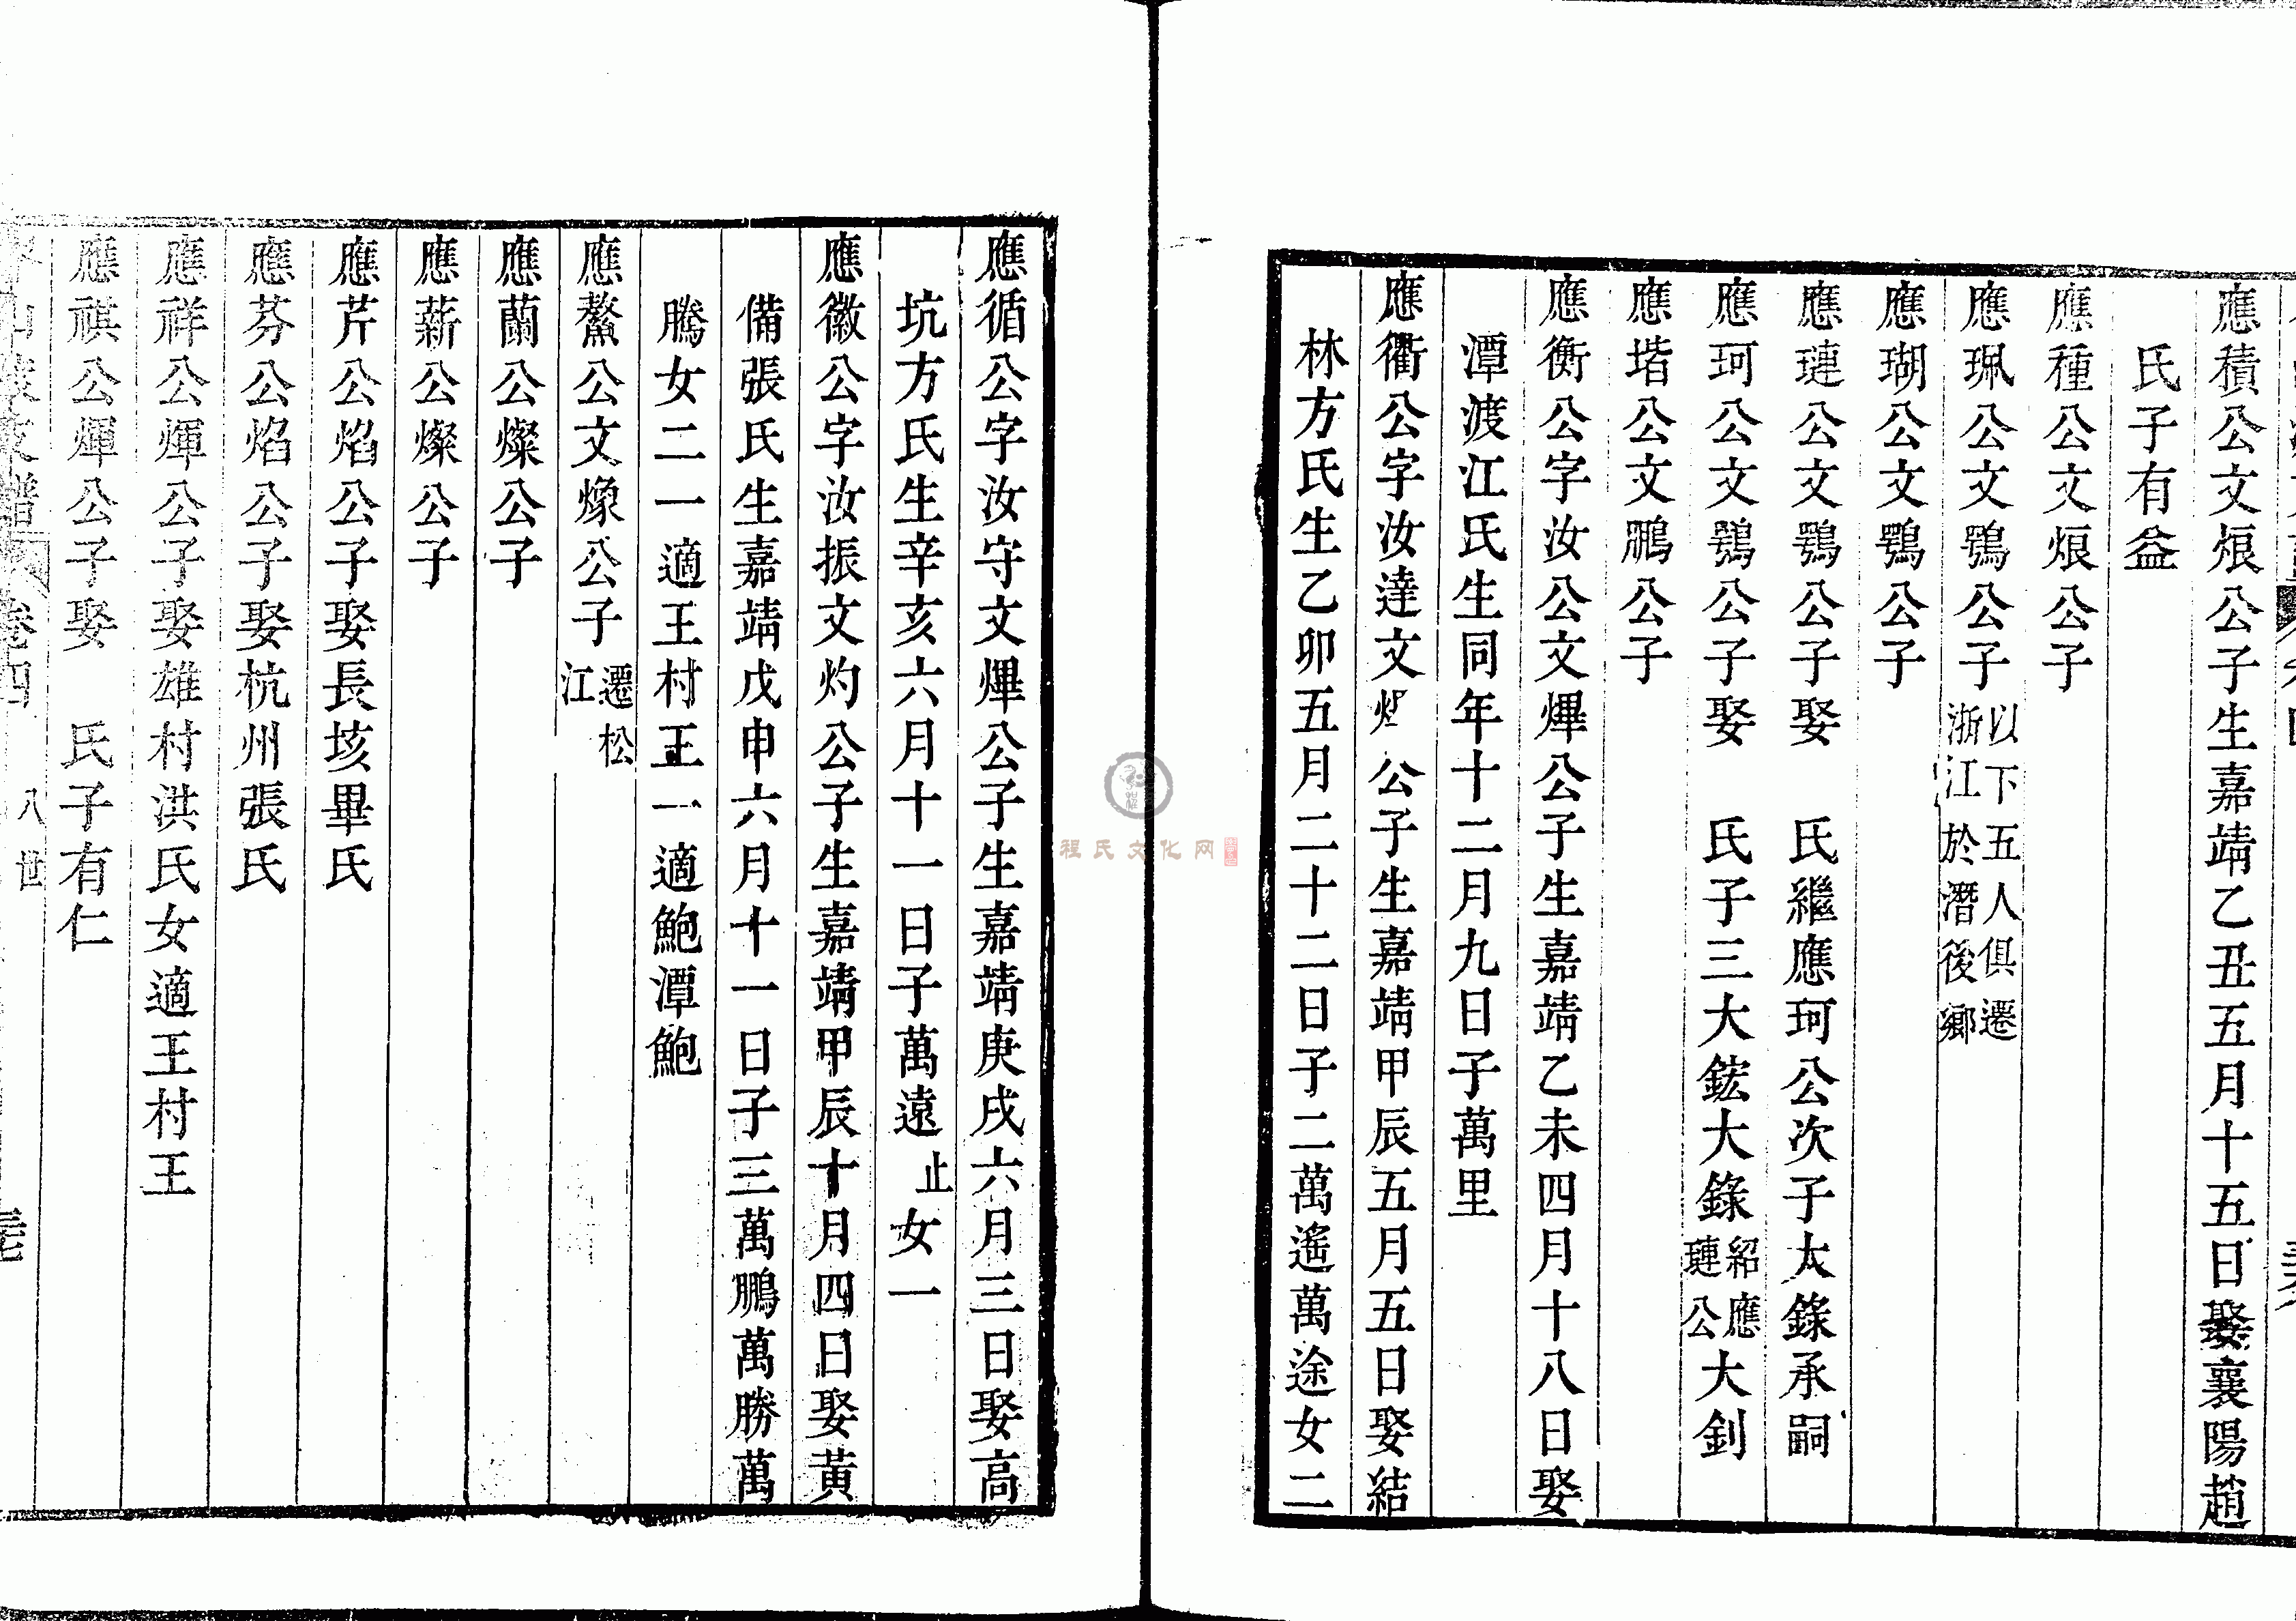 應積公文烺公子生嘉靖乙丑五月十五日娶襄陽趙
氏子有益
應種公文烺公子
應珮公文鶚公子以下五人俱遷
浙江於潛後鄉
應瑚公文鶚公子
應璉公文鶚公子娶　氏繼應珂公次子大錄承嗣
應珂公文鶚公子娶　氏子三大鋐大錄紹應
璉公大釗
應堦公文鵬公子
應衡公字汝公文熚公子生嘉靖乙未四月十八日娶
潭渡江氏生同年十二月九日子萬里
應衢公字汝達文公子生嘉靖甲辰五月五日娶結
林方氏生乙卯五月二十二日子二萬遙萬途女二
應循公字汝守文熚公子生嘉靖庚戌六月三日娶高
坑方氏生辛亥六月十一日子萬遠止女一
應徽公字汝振文灼公子生嘉靖甲辰十月四日娶黃
備張氏生嘉靖戊申六月十一日子三萬鵬萬勝萬
騰女二一適王村王一適鮑潭鮑
應鰲公文燦公子遷松
江
應蘭公燦公子
應薪公燦公子
應芹公焰公子娶長垓畢氏
應芬公焰公子娶杭州張氏
應祥公煇公子娶雄村洪氏女適王村王
應祺公煇公子娶　氏子有仁
支譜　卷四　八世
程氏文化网